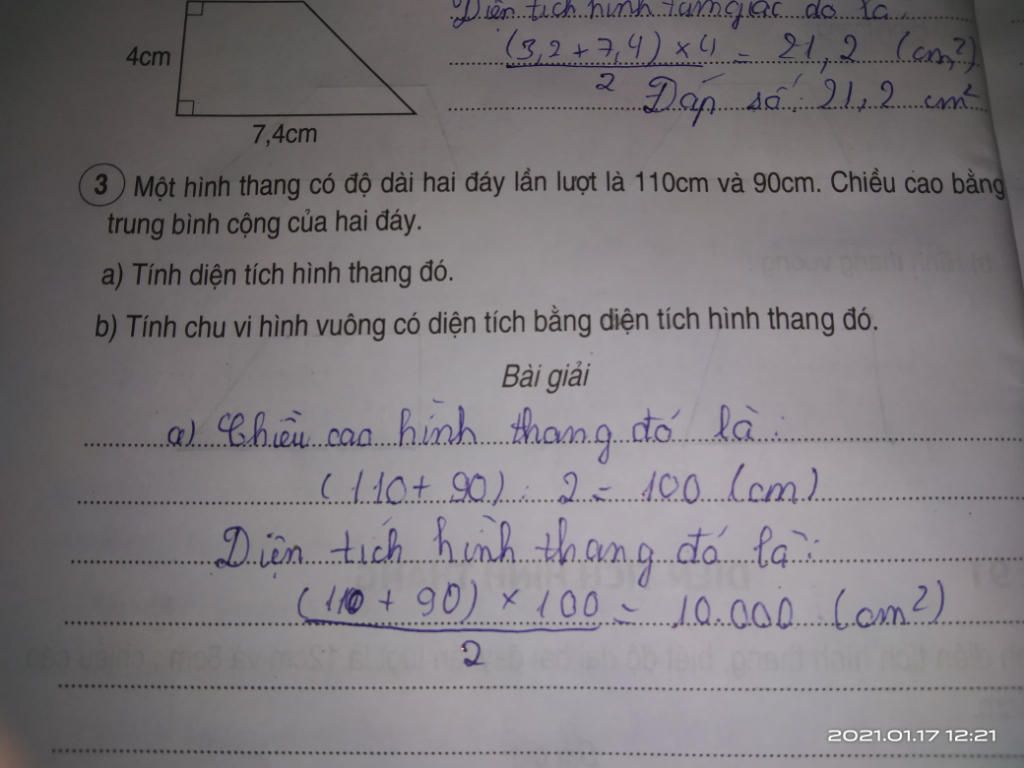 Diện tích hình tam giác đó là
4cm
(3,2 + 7,4) × 4 = 21,2 (cm²)
2
Đáp số: 21,2 cm²
7,4cm
3 Một hình thang có độ dài hai đáy lần lượt là 110cm và 90cm. Chiều cao bằng
trung bình cộng của hai đáy.
a) Tính diện tích hình thang đó.
b) Tính chu vi hình vuông có diện tích bằng diện tích hình thang đó.
Bài giải
a) Chiều cao hình thang đó là:
(110 + 90) : 2 = 100 (cm)
Diện tích hình thang đó là:
(110 + 90) × 100 = 10.000 (cm²)
2
2021.01.17 12:21